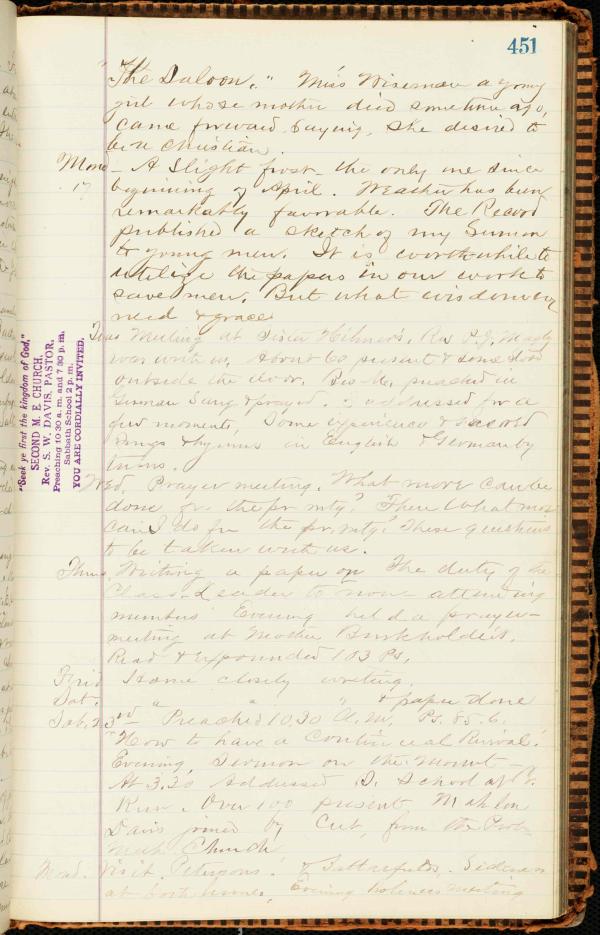 451
"The Saloon." Miss Wiseman a young
girl whose mother died sometime ago,
came forward saying, she desired to
be a Christian.
Mond - A slight frost - the only one since
17 beginning of April. Weather has been
remarkably favorable. The Record
published a sketch of my Sermon
to young men. It is worth while to
utilize the papers in our work to
save men. But what wisdom we
need & grace
Tues Meeting at Sister Hilmer's, Rev P. J.
was with us, about 60 present & some stood
outside the door. Bro M. preached in
German Sung & prayed, I addressed for a
few moments, Some experience & sacred
songs & hymns in English & German by
turns.
Wed. Prayer meeting. What more can be
done or the pr. mtg? Then What more
can I do for the pr. mtg? These questions
to be taken with us.
Thurs. Writing a paper on The duty of the
Class-Leader to non-attending
members Evening held a prayer-
meeting at Mother Burkholder's.
Read & expounded 103 Ps.
Frid Home closely writing.
Sat. " " " & paper done
Sab. 23rd Preached 10.30 A.M. Ps. 85.6.
"How to have a Continual Revival."
Evening, Sermon on the Mount -
At 3.30 Addressed S. School at
Run. Over 100 present Mahlon
Davis joined by Cert, from the Prot-
Meth Church
Mond. Visit Petersons! &
at both homes, Evening holiness meeting
"Seek ye first the kingdom of God."
SECOND M. E. CHURCH.
Rev. S. W. DAVIS, PASTOR,
Preaching 10 30 a. m. and 7 30 p. m.
Sabbath School 2 p. m.
YOU ARE CORDIALLY INVITED.